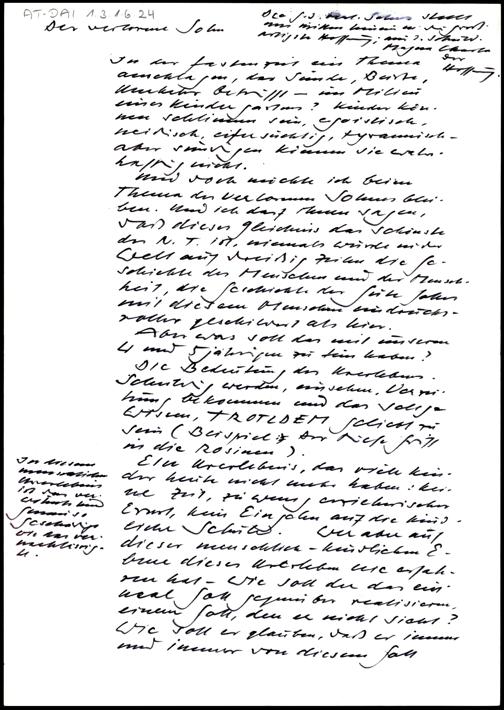 AT-DAI 1.3.1.6.24
Der verlorene Sohn
Magna Charta
der
Hoffnung
In der Fastenzeit ein Thema
anschlagen, das Sünde, Busse,
Umkehr betrifft – im Milieu
eines Kindergartens? Kinder kön-
nen schlimm sein, egoistisch,
neidisch, eifersüchtig, tyrannisch –
aber sündigen können sie wahr-
haftig nicht.
Und doch möchte ich beim
Thema des verlorenen Sohnes blei-
ben. Und ich darf Ihnen sagen,
daß dieses Gleichnis das schönste
des N. T. ist, niemals wurde in der
Welt auf dreißig Zeilen die Ge-
schichte des Menschen und der Mensch-
heit, die Geschichte der Güte Gottes
mit diesem Menschen eindrucks-
voller geschildert als hier.
Aber was soll das mit unseren
4 und 5jährigen zu tun haben?
Die Bedeutung des Urerlebens.
Schuldig werden, einsehen, Verzei-
hung bekommen und das selige
Wissen, TROTZDEM geliebt zu
sein (Beispiel: Der Griff
in die Rosinen).
Ein Urerlebnis, das viele Kin-
der heute nicht mehr haben: kei-
ne Zeit, zu wenig erzieherischer
Ernst, kein Eingehn auf die kind-
liche Schuld. Wer aber auf
dieser menschlich-kindlichen E-
bene dieses Urerleben nie erfah-
ren hat – wie soll der das ein-
mal Gott gegenüber realisieren,
einem Gott, den er nicht sieht?
Wie soll er glauben, daß er immer
und immer von diesem Gott
In diesem
menschlichen
Urerlebnis
ist das
Geschädigte
wie das ver-
nachlässig-
te.